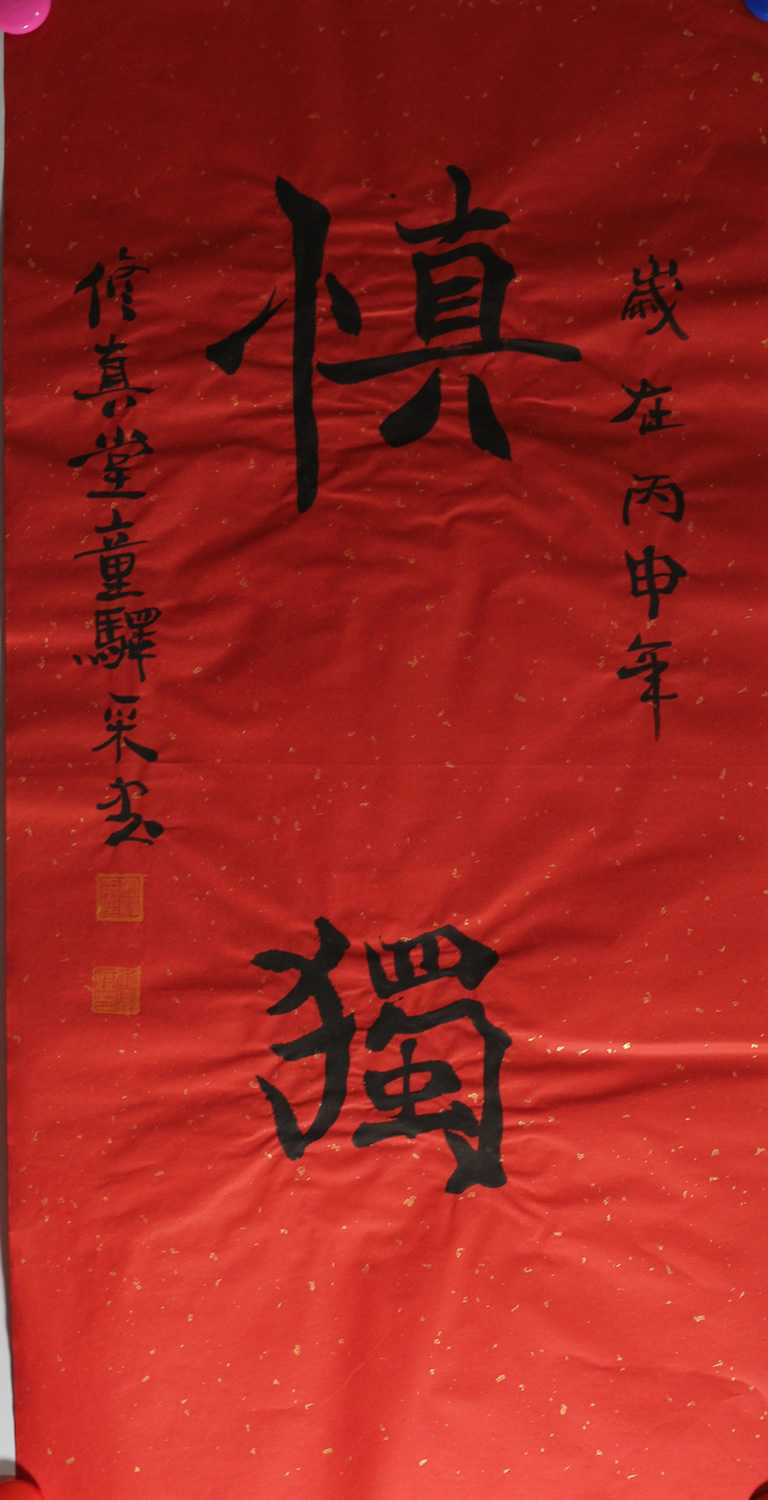 歲在丙申年
慎獨
修真堂童驛采書